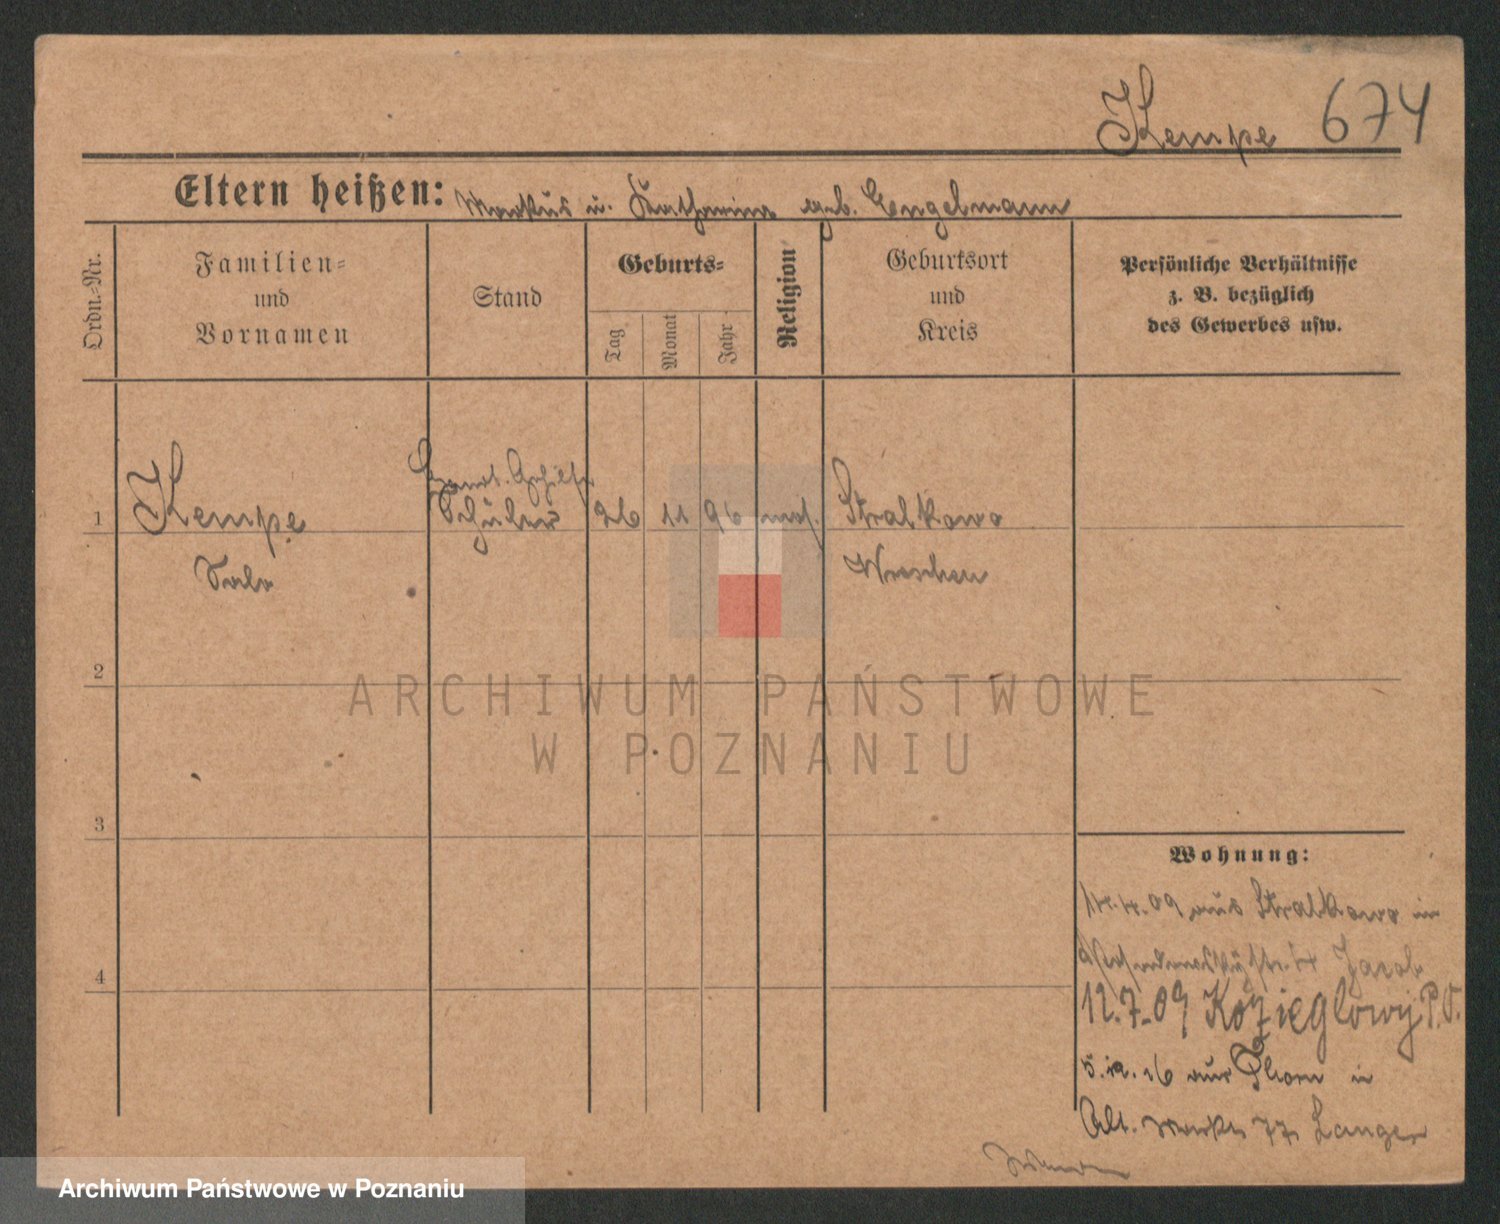 Kempe 674
Eltern heißen: Markus u. Katharina geb. Engelmann
Ordn.-Nr.
Familien-
und
Vornamen
Stand
Geburts-
Tag
Monat
Jahr
Religion
Geburtsort
und
Kreis
Persönliche Verhältnisse
z. B. bezüglich
des Gewerbes usw.
Handl. Gehilfe
1 Kempe Schüler 26 11 96 mos. Stralkowo
Salo Wreschen
2
ARCHIWUM PAŃSTWOWE
W POZNANIU
3
Wohnung:
14.4.09 aus Stralkowo in
4 Jacob
12.7.09 Kozieglowy P.O.
5.12.16 aus Thorn in
Alt. Markt 77 Langer
Archiwum Państwowe w Poznaniu